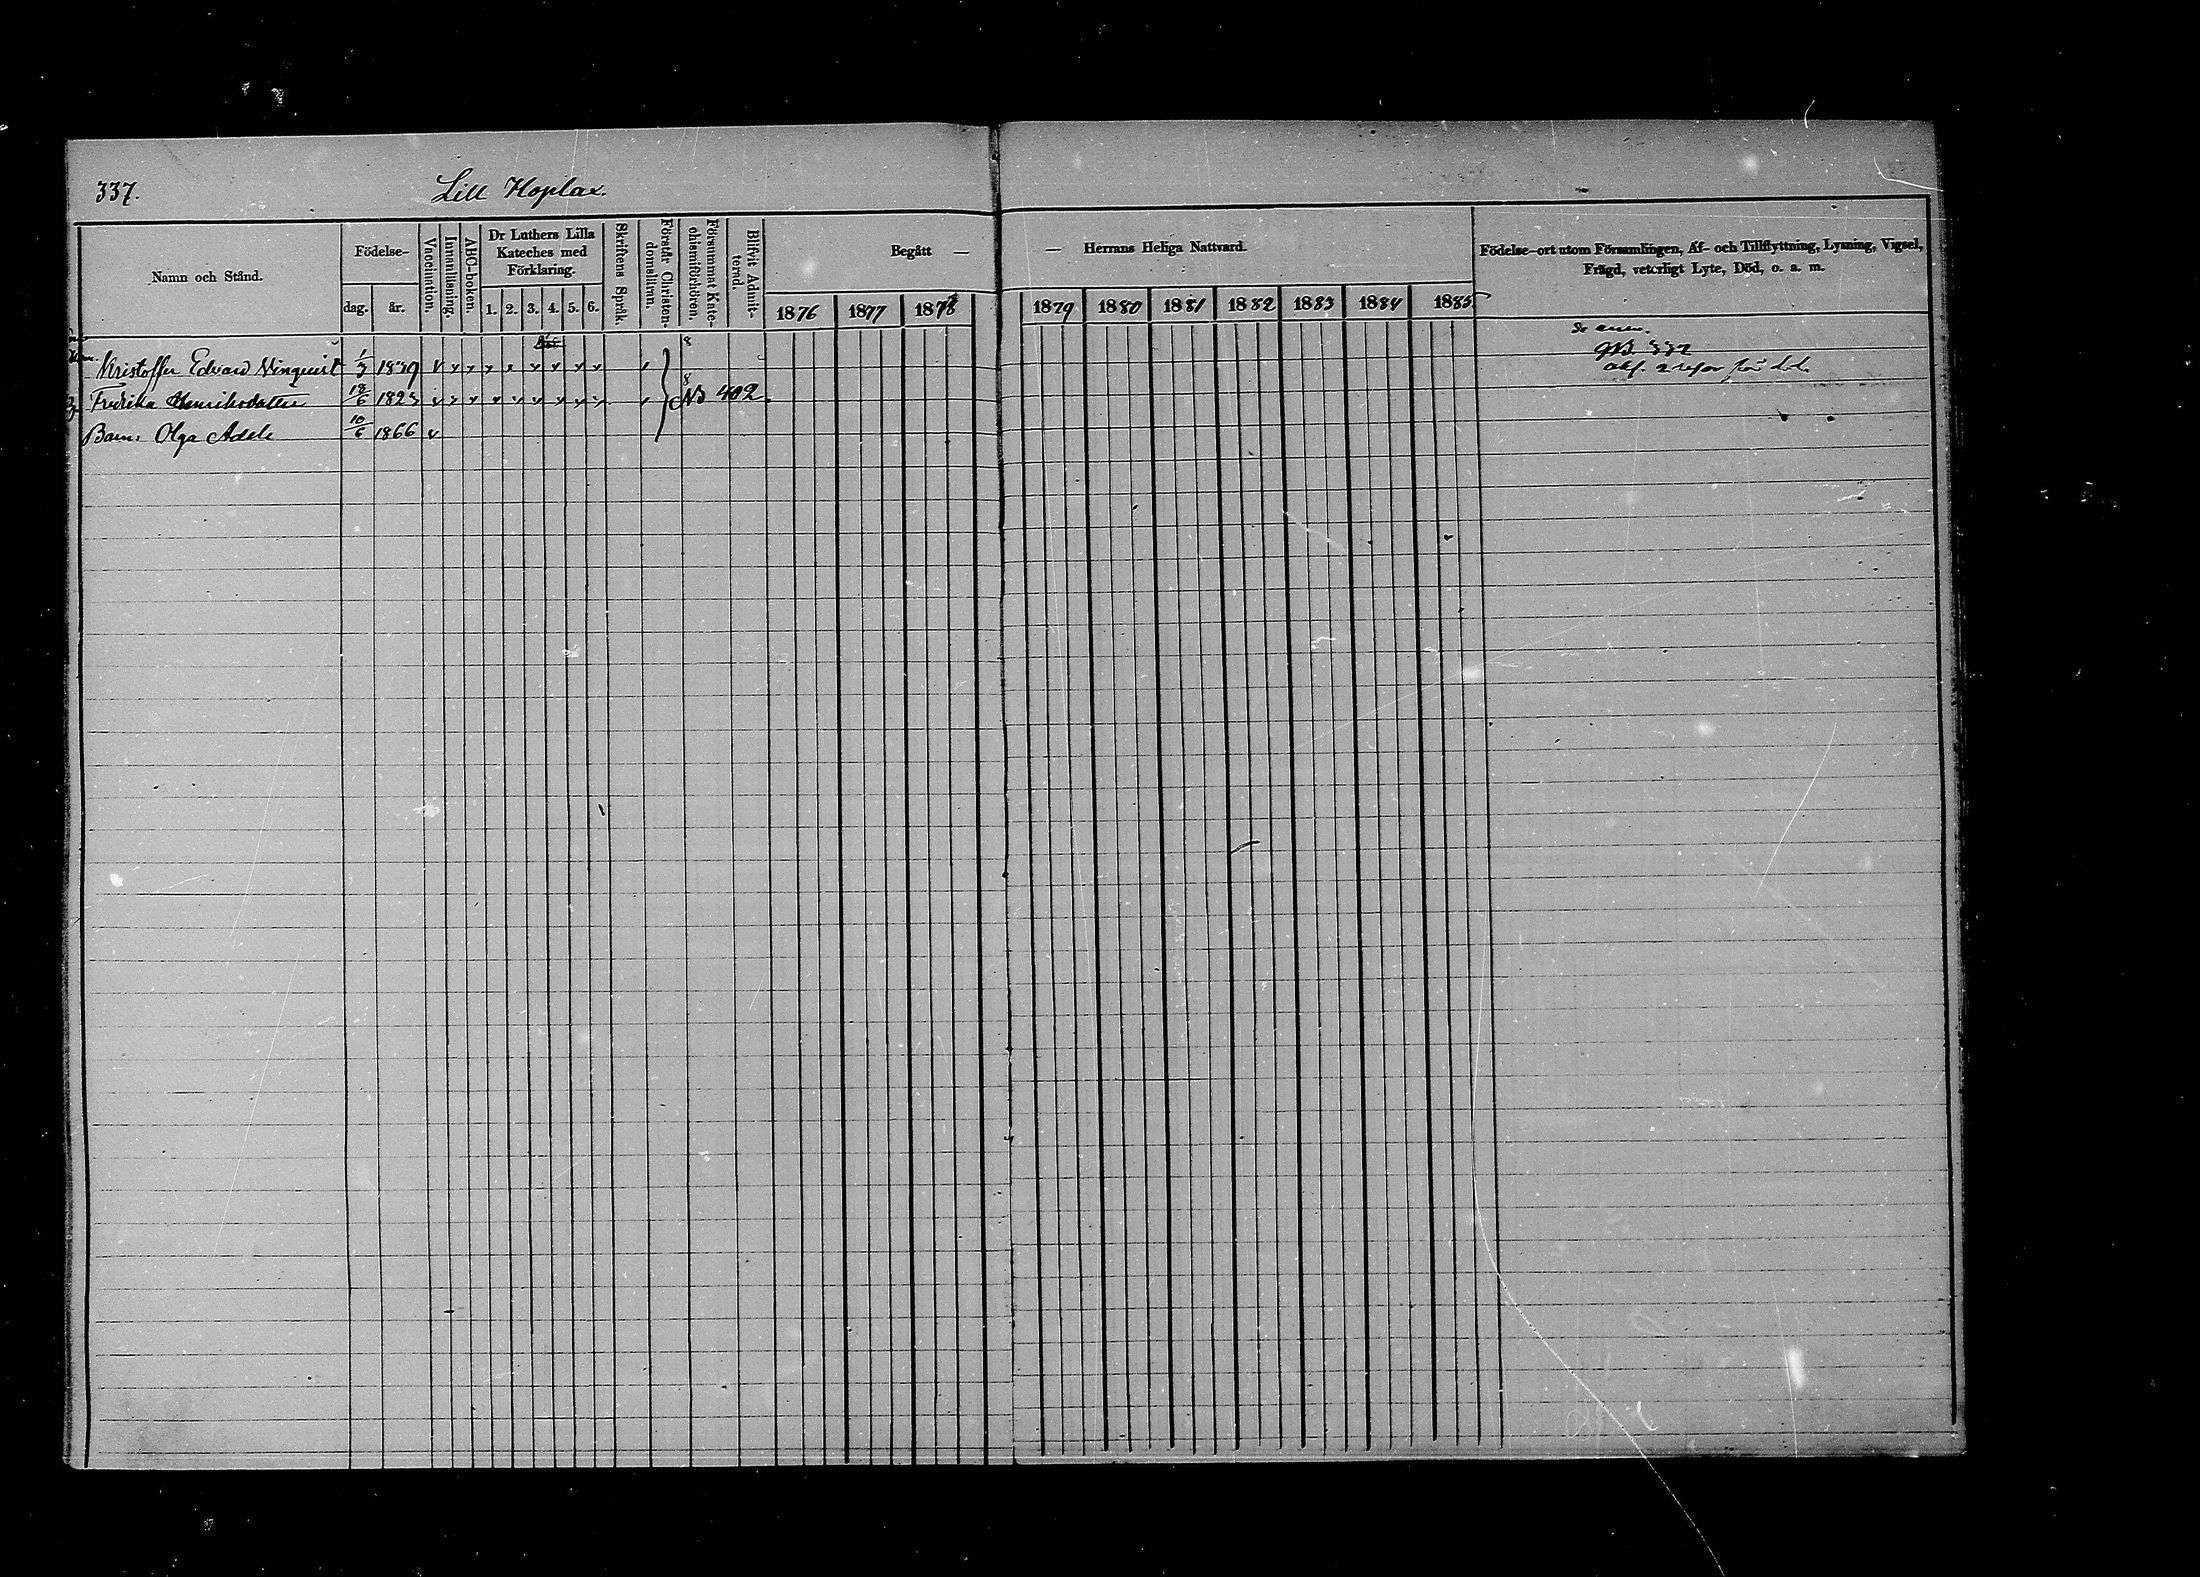 337.
Lill Hoplax.
Namn och Stånd.
Födelse-
dag.
år.
Vaccination.
Innanläsning.
ABC-boken.
Dr Luthers Lilla
Kateches med
Förklaring.
1. 2. 3. 4. 5. 6.
Skriftens Språk.
Förstår Christen-
domsläran.
Försummat Kate-
chismiförhören.
Blifvit Admit-
terad.
Begått —
1876 1877 1878
— Herrans Heliga Nattvard.
1879 1880 1881 1882 1883 1884 1885
Födelse-ort utom Församlingen, Af- och Tillflyttning, Lysning, Vigsel,
Frägd, veterligt Lyte, Död, o. a. m.
Kristoffer Edvard Vinqvist 1/3 1839 v v v v v v v v v v
Fredrika Henriksdotter 18/6 1823 v v v v v v v v v v No 402.
Barn: Olga Adele 10/6 1866 v
332